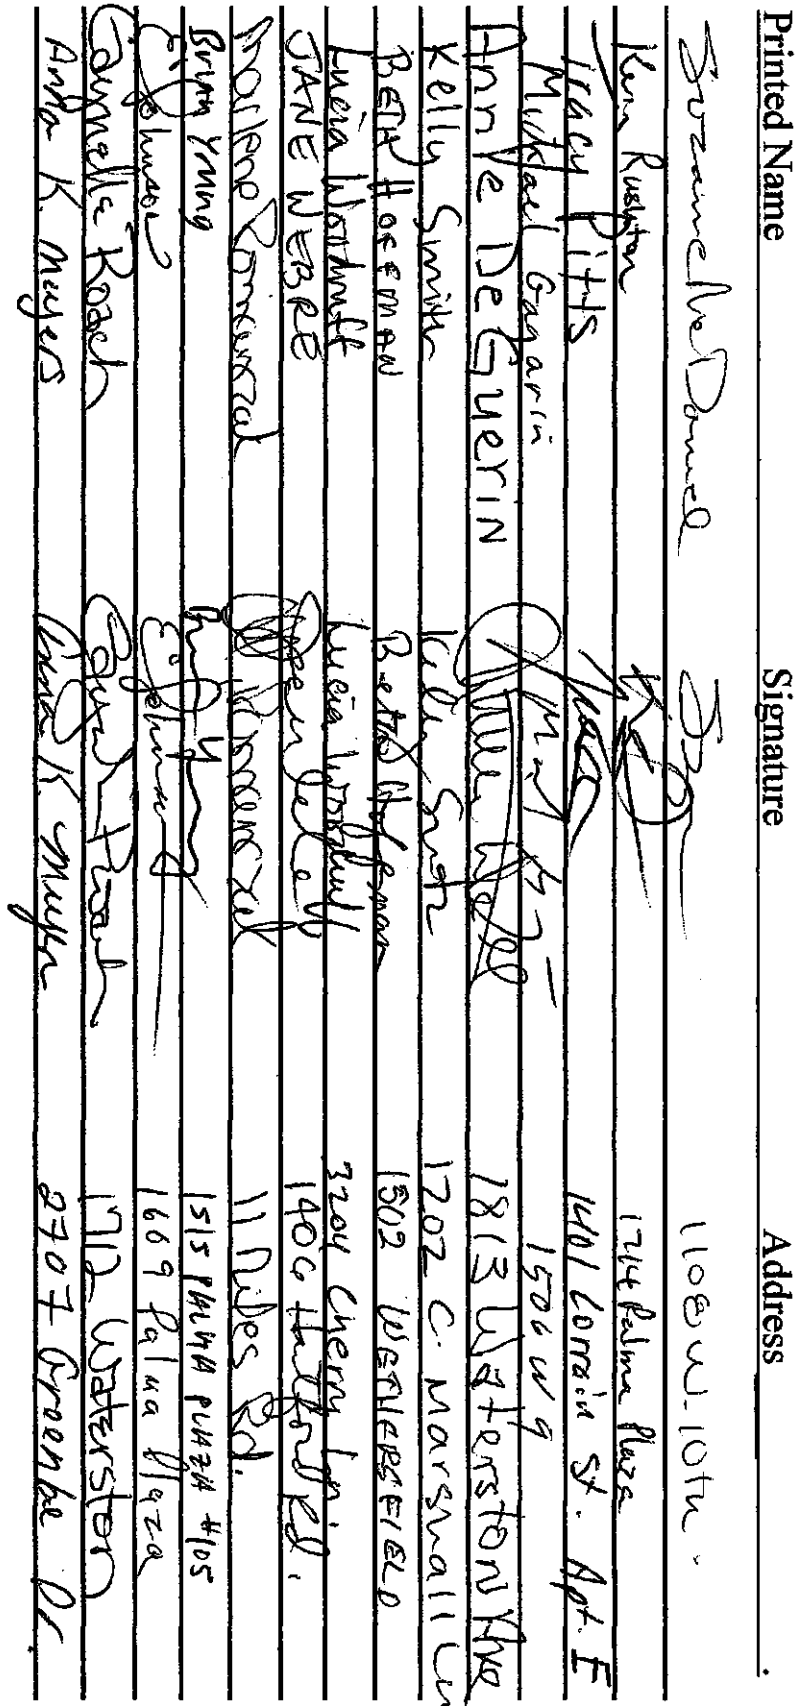 Printed Name Signature Address
Suzanne McDaniel 1108 W. 10th.
Kern Rushton 1714 Palma Plaza
Tracy Pitts 1401 Lorrain St. Apt. E
Michael Gagarin 1506 W 9
Ann Ye DeGuerin 1813 Waterston Ave
Kelly Smith Kelly Smith 1202 C. Marshall Ln
BETH HOFFMAN Beth Hoffman 1502 WETHERSFIELD
Lucia Woodruff Lucia Woodruff 3204 Cherry Ln.
JANE WEBRE 1406 Hartford Rd.
Marlene Romanczak Romanczak 11 Niles Rd.
Brian Young 1515 PALMA PLAZA #105
E Johnson E Johnson 1609 Palma Plaza
Roach Roach 1712 Waterston
Anna K. Meyers Anna K. Meyers 2707 Greenlee Dr.